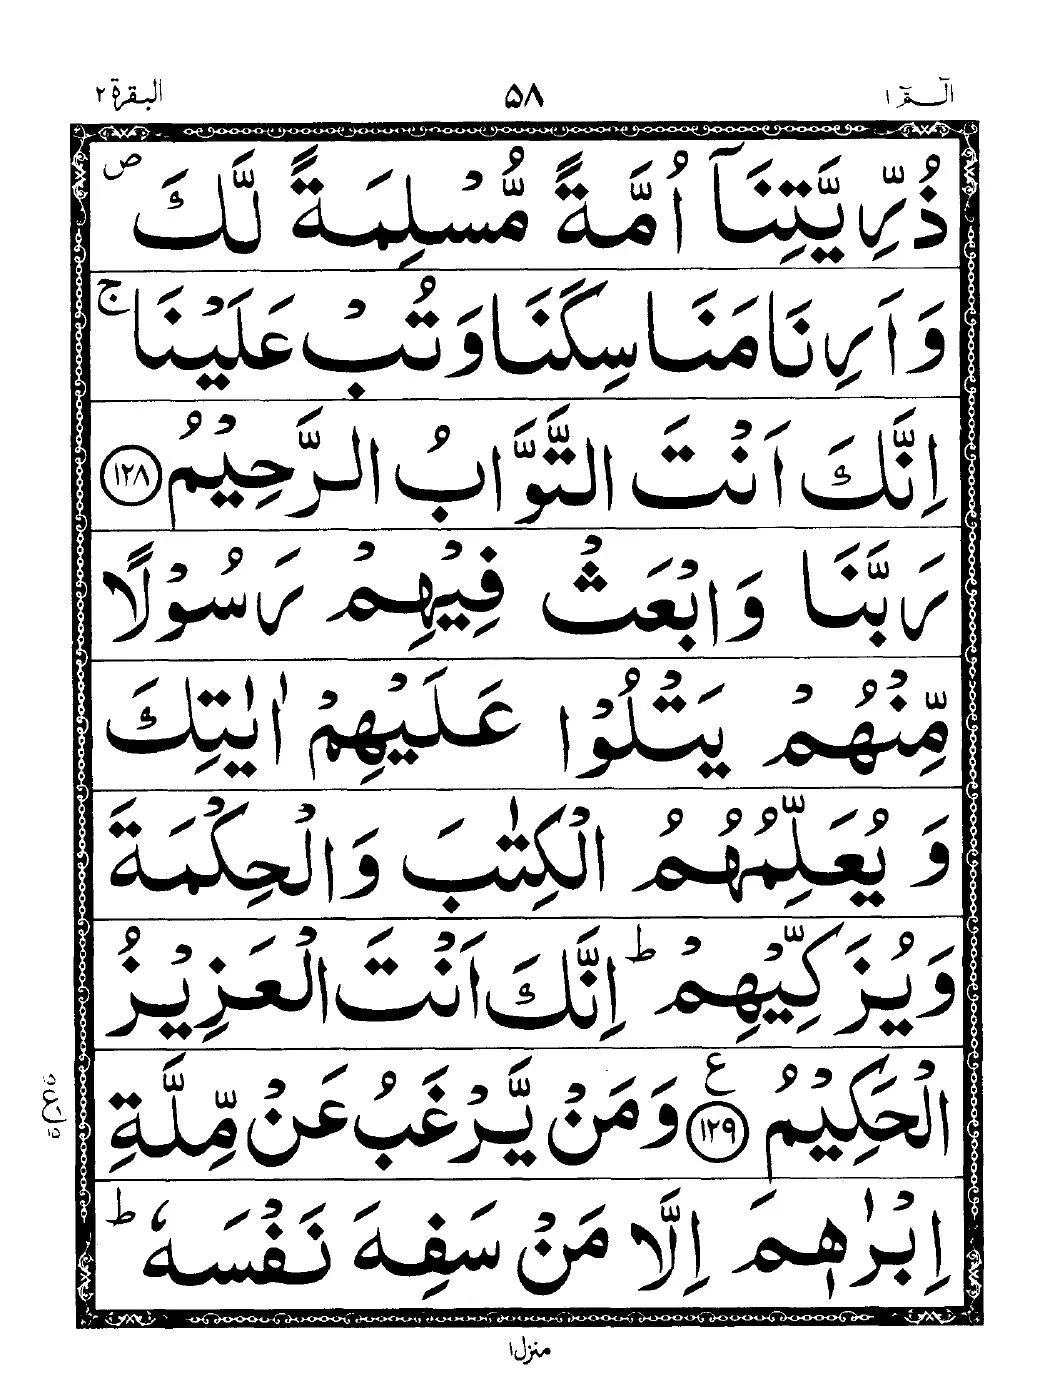 الٓـمّٓ ١ ۵۸ البقرة ٢
ذُرِّیَّتِنَاۤ اُمَّةً مُّسْلِمَةً لَّكَ ص
وَ اَرِنَا مَنَاسِكَنَا وَ تُبْ عَلَیْنَا ج
اِنَّكَ اَنْتَ التَّوَّابُ الرَّحِیْمُ ۱۲۸
رَبَّنَا وَ ابْعَثْ فِیْهِمْ رَسُوْلًا
مِّنْهُمْ یَتْلُوْا عَلَیْهِمْ اٰیٰتِكَ
وَ یُعَلِّمُهُمُ الْكِتٰبَ وَ الْحِكْمَةَ
وَ یُزَكِّیْهِمْ ط اِنَّكَ اَنْتَ الْعَزِیْزُ
الْحَكِیْمُ ع ۱۲۹ وَ مَنْ یَّرْغَبُ عَنْ مِّلَّةِ
اِبْرٰهٖمَ اِلَّا مَنْ سَفِهَ نَفْسَهٗ ط
منزل ١